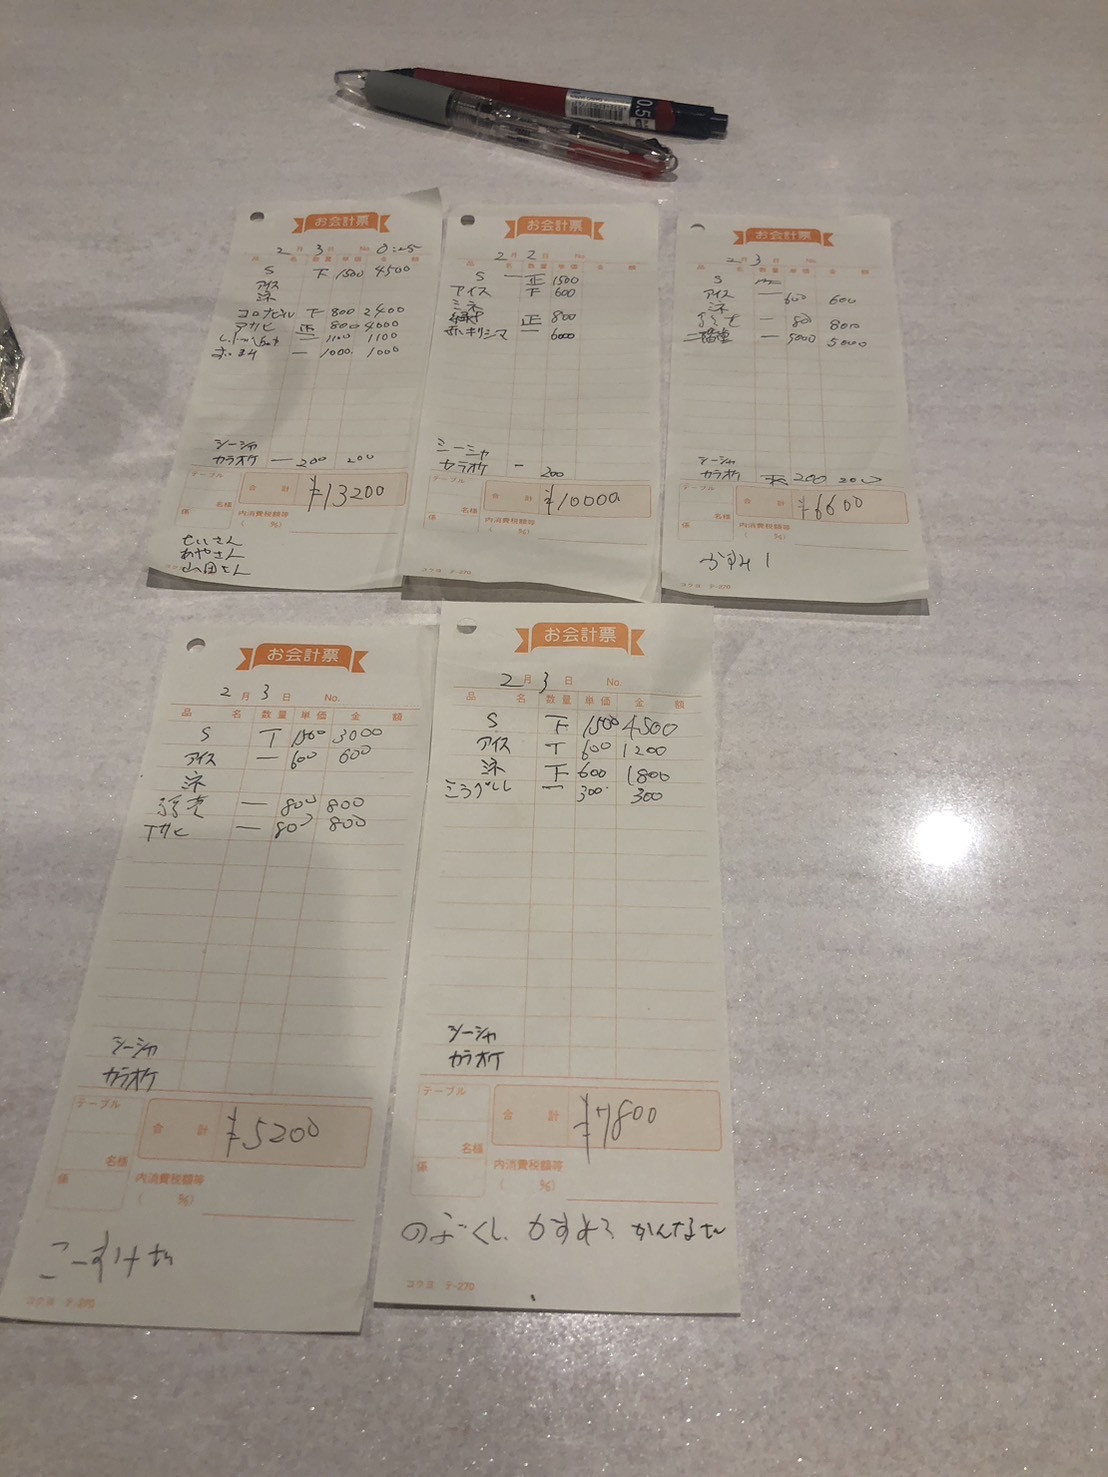 0.5
お会計票
2月3日 No. 0:25
品名 数量 単価 金額
S 下 1500 4500
アイス
ミネ
コロナビール 下 800 2400
アサヒ 正 800 4000
一 1100 1100
一 1000 1000
シーシャ
カラオケ 一 200 200
テーブル
合計 ¥13200
名様
係 内消費税額等
( %)
せいさん
あやさん
山田さん
お会計票
2月2日 No.
品名 数量 単価 金額
S 一 正 1500
アイス 下 600
ミネ
正 800
赤キリシマ 一 6000
シーシャ
カラオケ 一 200
テーブル
合計 ¥10000
名様
係 内消費税額等
( %)
コクヨ テ-270
お会計票
2月3日 No.
品名 数量 単価 金額
S
アイス 一 600 600
ミネ
一 800 800
二階堂 一 5000 5000
シーシャ
カラオケ 200 200
テーブル
合計 ¥6600
名様
係 内消費税額等
( %)
コクヨ テ-270
お会計票
2月3日 No.
品名 数量 単価 金額
S T 1500 3000
アイス 一 600 600
ミネ
一 800 800
アサヒ 一 800 800
シーシャ
カラオケ
テーブル
合計 ¥5200
名様
係 内消費税額等
( %)
こーすけさん
コクヨ テ-270
お会計票
2月3日 No.
品名 数量 単価 金額
S 下 1500 4500
アイス T 600 1200
ミネ 下 600 1800
一 300 300
シーシャ
カラオケ
テーブル
合計 ¥7800
名様
係 内消費税額等
( %)
コクヨ テ-270